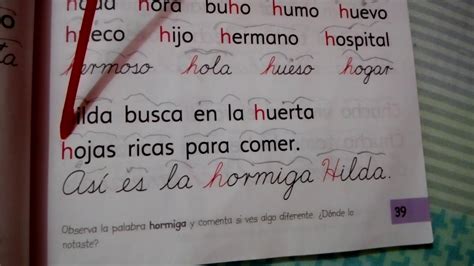 hada hora buho humo huevo
hueco hijo hermano hospital
hermoso hola hueso hogar
Hilda busca en la huerta
hojas ricas para comer.
Así es la hormiga Hilda.
Observa la palabra hormiga y comenta si ves algo diferente. ¿Dónde lo
notaste?
39